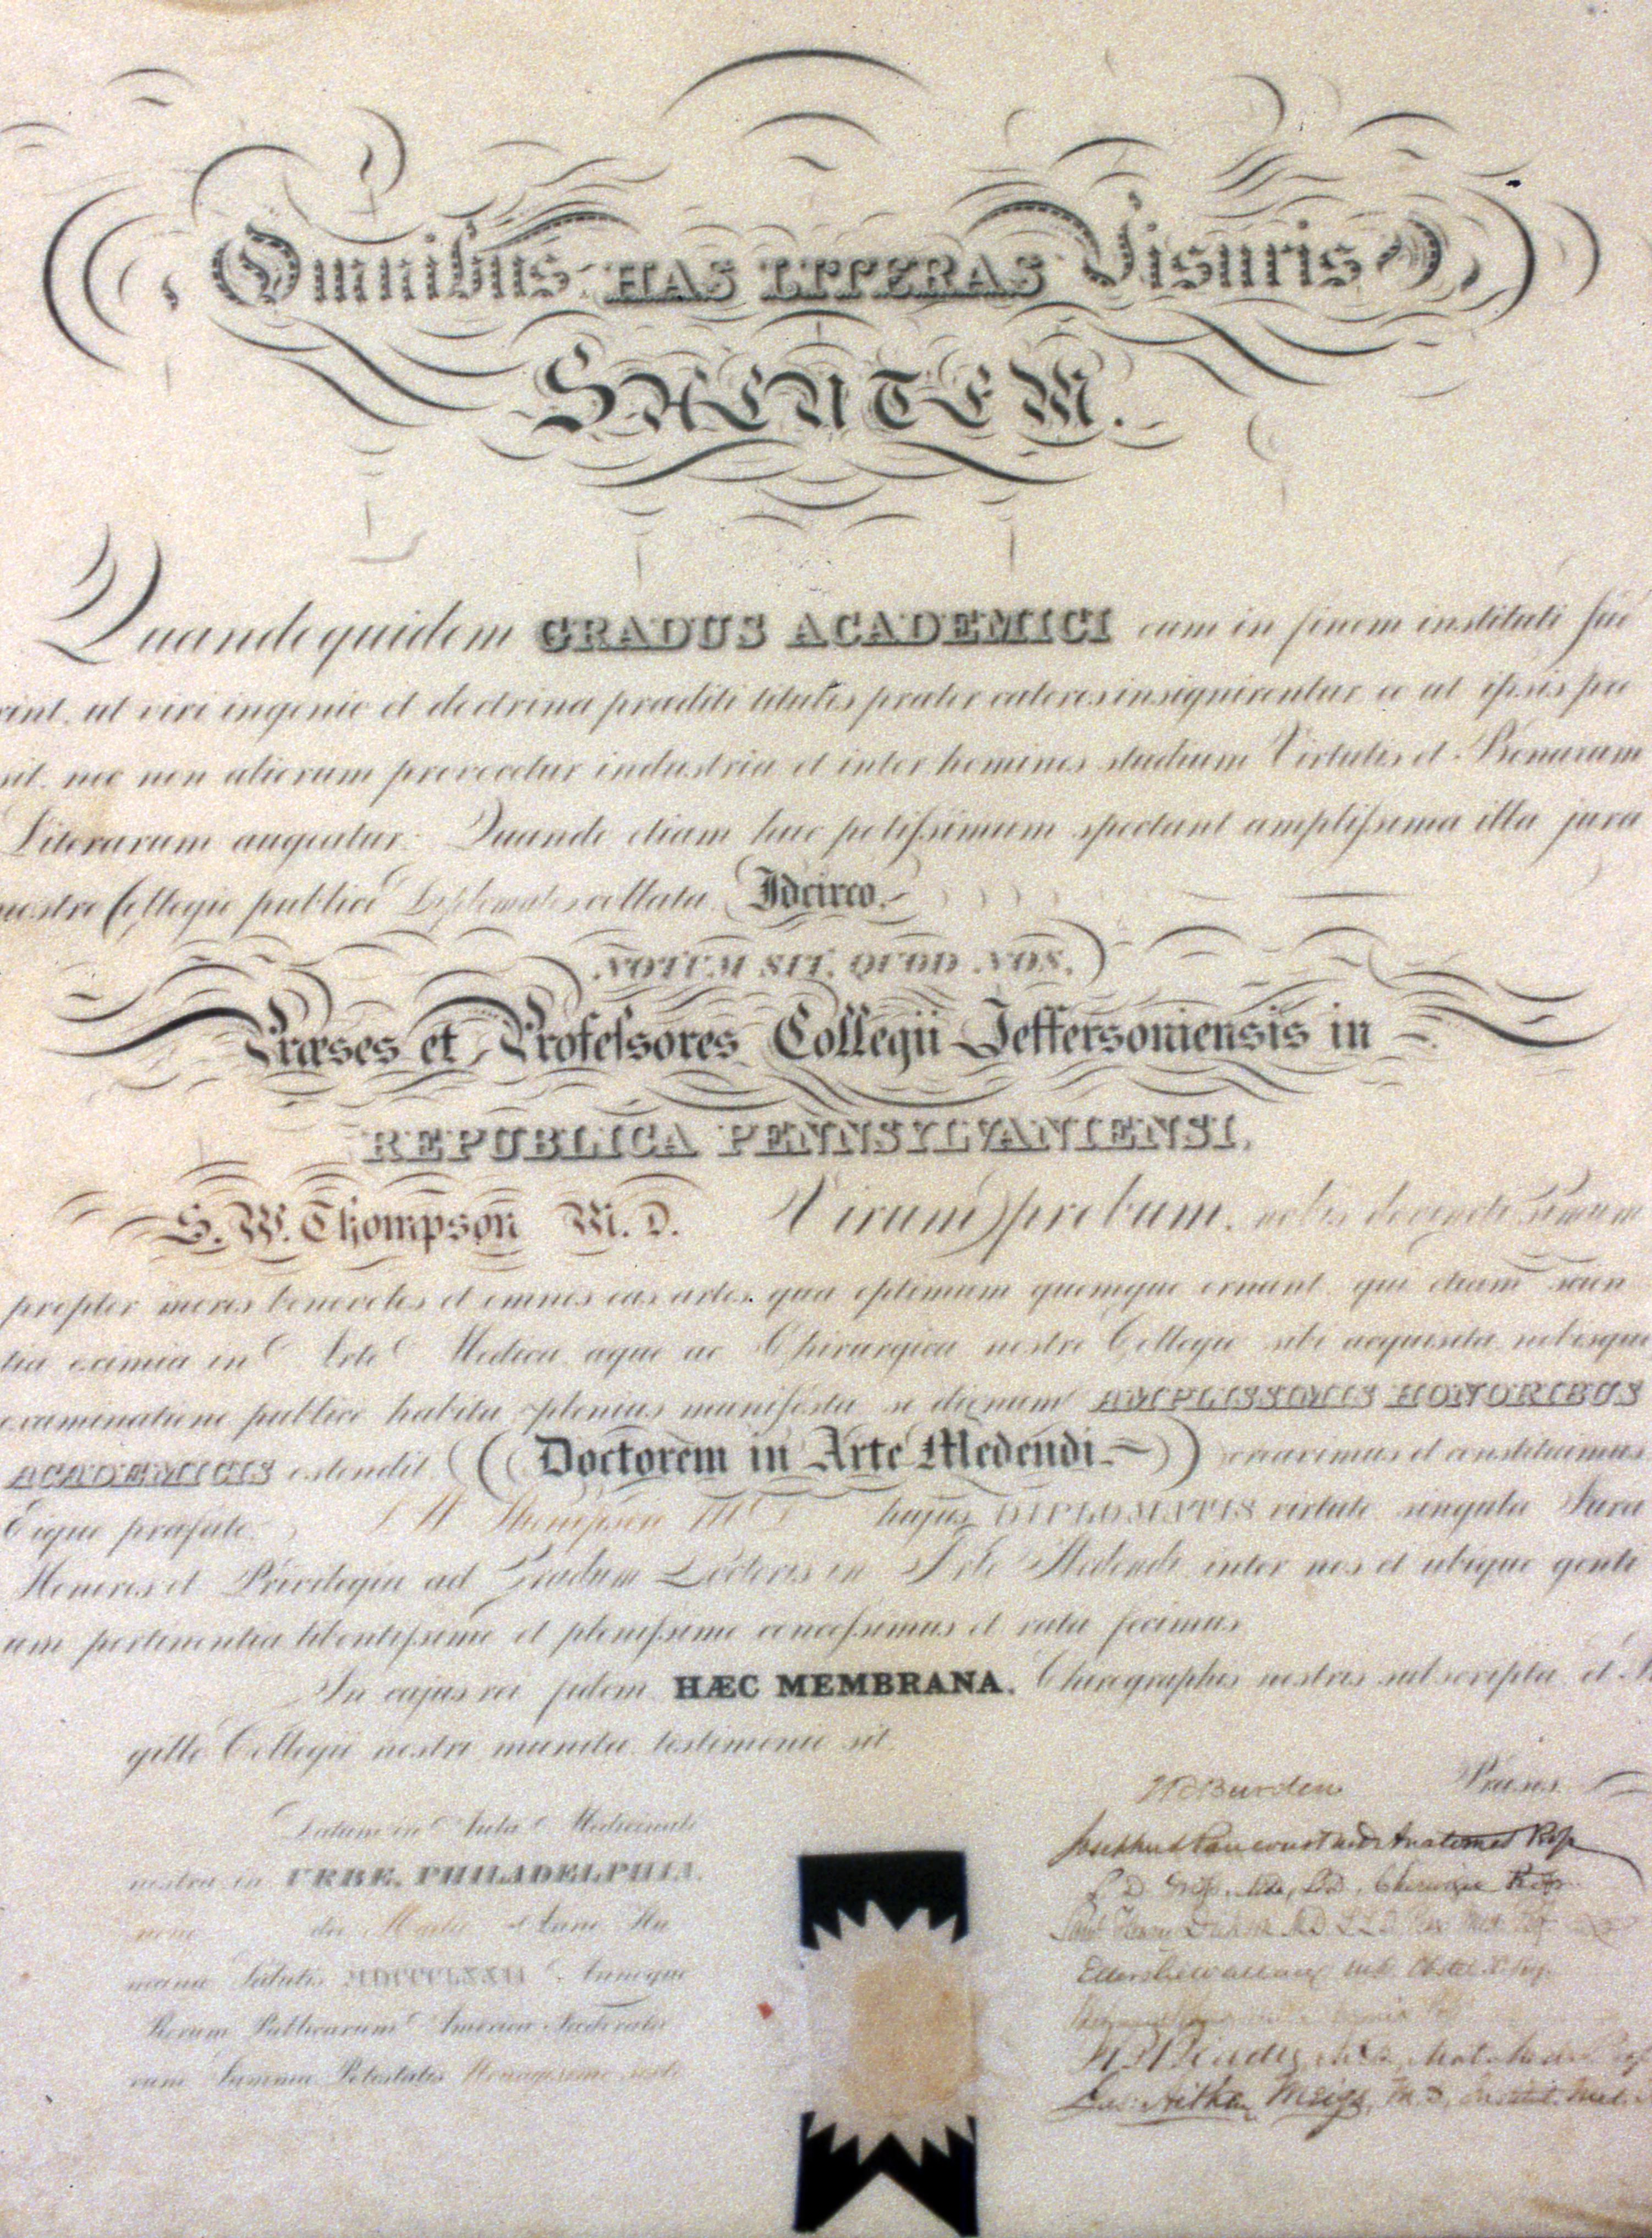 Omnibus HAS LITTERAS Visuris
SALUTEM.
Quandoquidem GRADUS ACADEMICI eum in finem instituti fue
rint, ut viri ingenio et doctrina præditi titulis præter cæteros insignirentur eo ut ipsis pro
sit, nec non aliorum provocetur industria et inter homines studium Virtutis et Bonarum
Literarum augeatur. Quando etiam huc potissimum spectant amplissima illa jura
nostro Collegio publico Diplomate collata. Idcirco.
NOTUM SIT, QUOD NOS,
Præses et Professores Collegii Jeffersoniensis in
REPUBLICA PENNSYLVANIENSI,
S. W. Thompson M. D. Virum probum, nobis
propter mores benevolos et omnes eas artes quæ optimum quemque ornant, qui etiam scien
tia eximia in Arte Medica æque ac Chirurgica nostro Collegio sibi acquisita nobisque
examinatione publice habita plenius manifesta se dignum AMPLISSIMIS HONORIBUS
ACADEMICIS ostendit (Doctorem in Arte Medendi) creavimus et constituimus
Eique præfato S W Thompson M D hujus DIPLOMATIS virtute singula Jura
Honores et Privilegia ad Gradum Doctoris in Arte Medendi inter nos et ubique genti
um pertinentia libentissime et plenissime concessimus et rata fecimus
In cujus rei fidem HÆC MEMBRANA, Chirographis nostris subscripta et Si
gillo Collegii nostri munita testimonio sit.
Datum in Aula Medicinali
nostra in URBE PHILADELPHIA,
die Martii Anno Hu
manæ Salutis MDCCCLXXII Annoque
Rerum Publicarum Americæ Fœderata
rum Summæ Potestatis Nonagesimo sexto
Burden Præses
Anatomes Prof
Chirurgiæ Prof
Ellerslie Wallace M.D. Obstet
M.D. Mat. Med. Prof
Jas: Aitken Meigs, M.D. Institut. Med.